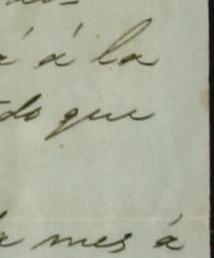 á á la
do que
mes á